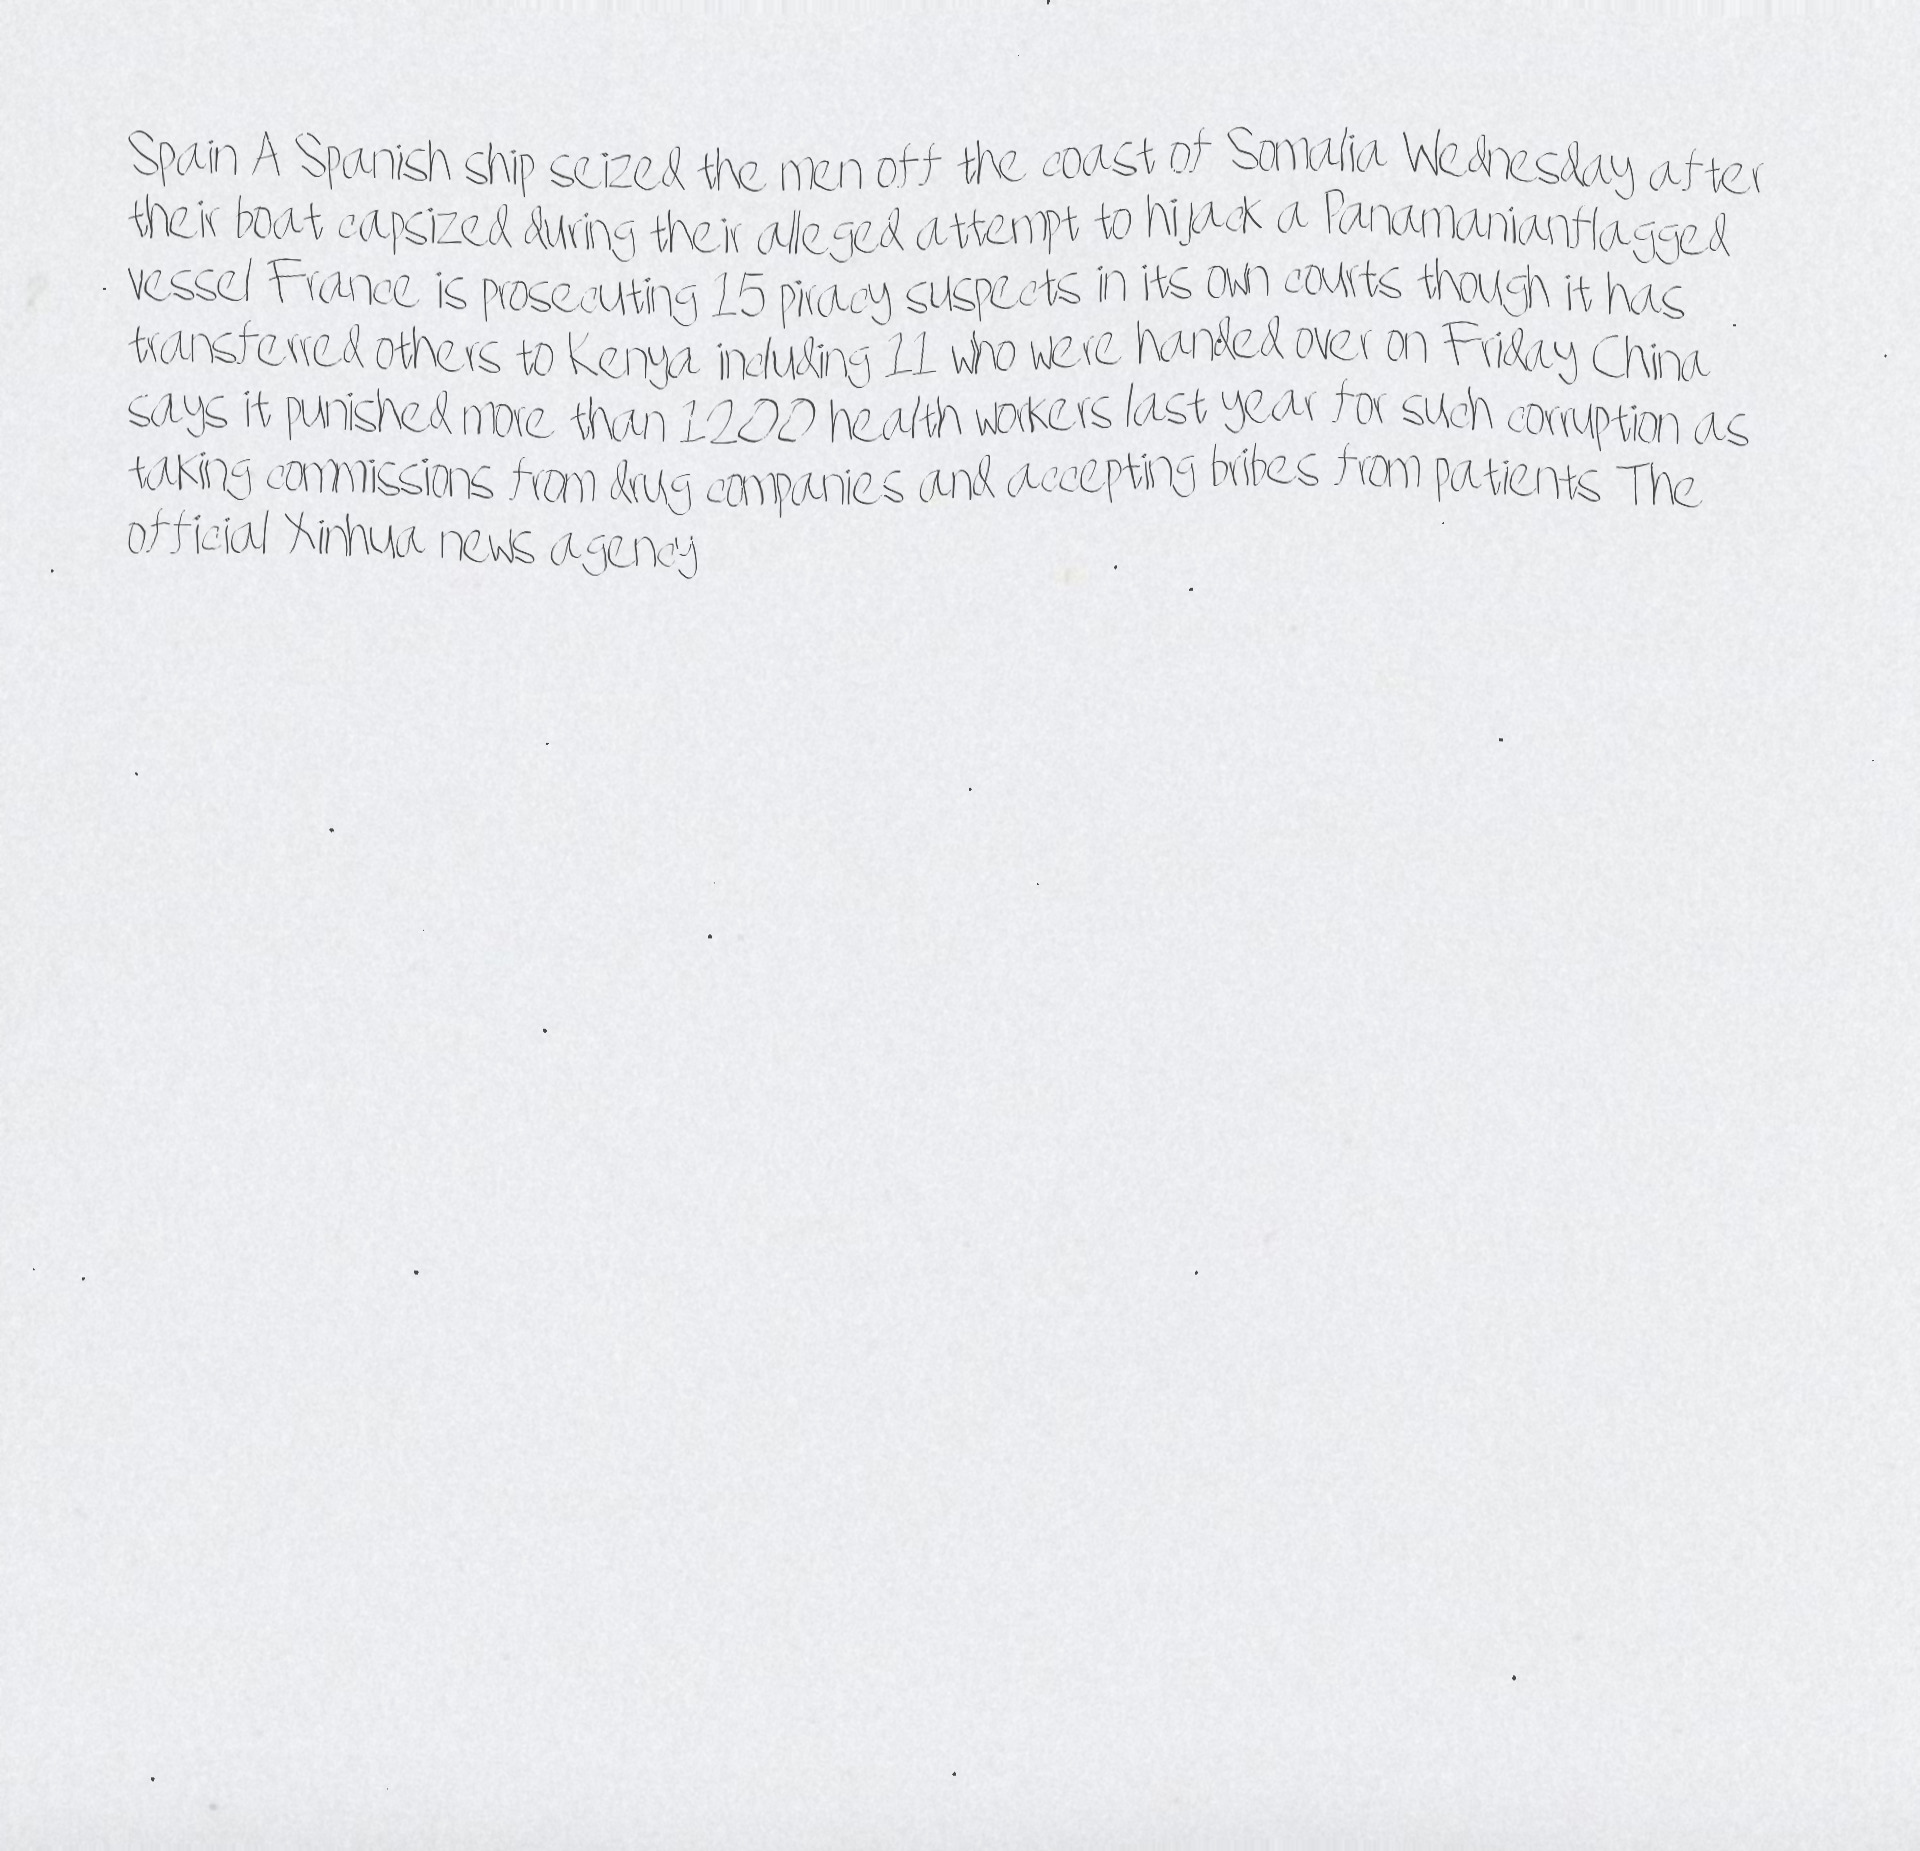 Spain A Spanish ship seized the men off the coast of Somalia Wednesday after
their boat capsized during their alleged attempt to hijack a Panamanianflagged
vessel France is prosecuting 15 piracy suspects in its own courts though it has
transferred others to Kenya including 11 who were handed over on Friday China
says it punished more than 1200 health workers last year for such corruption as
taking commissions from drug companies and accepting bribes from patients The
official Xinhua news agency